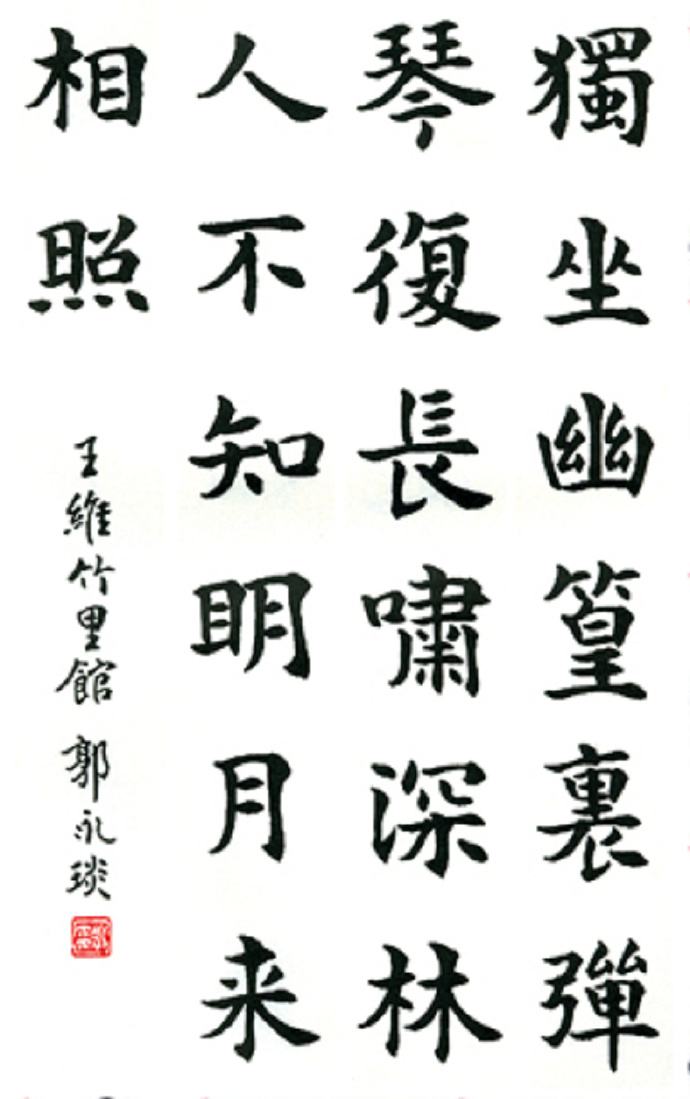 獨坐幽篁裏彈
琴復長嘯深林
人不知明月来
相照
王維竹里館 郭永琰